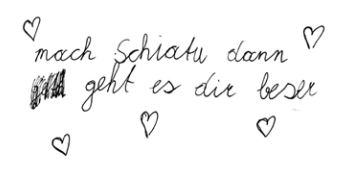 mach Schiatu dann
geht es dir beser